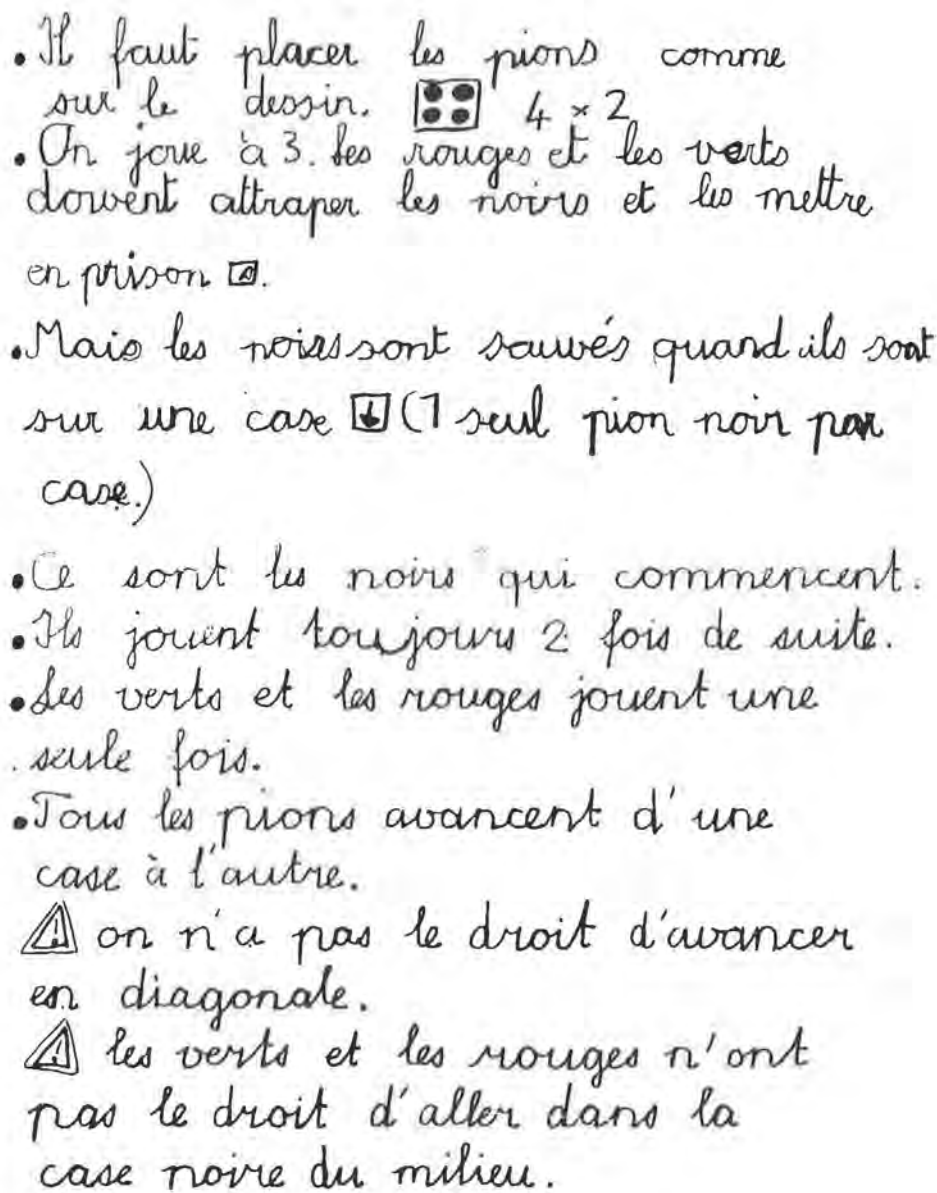 • Il faut placer les pions comme
sur le dessin. 4 × 2
• On joue à 3. Les rouges et les verts
doivent attraper les noirs et les mettre
en prison.
• Mais les noirs sont sauvés quand ils sont
sur une case (1 seul pion noir par
case.)
• Ce sont les noirs qui commencent.
• Ils jouent toujours 2 fois de suite.
• Les verts et les rouges jouent une
seule fois.
• Tous les pions avancent d'une
case à l'autre.
on n'a pas le droit d'avancer
en diagonale.
les verts et les rouges n'ont
pas le droit d'aller dans la
case noire du milieu.